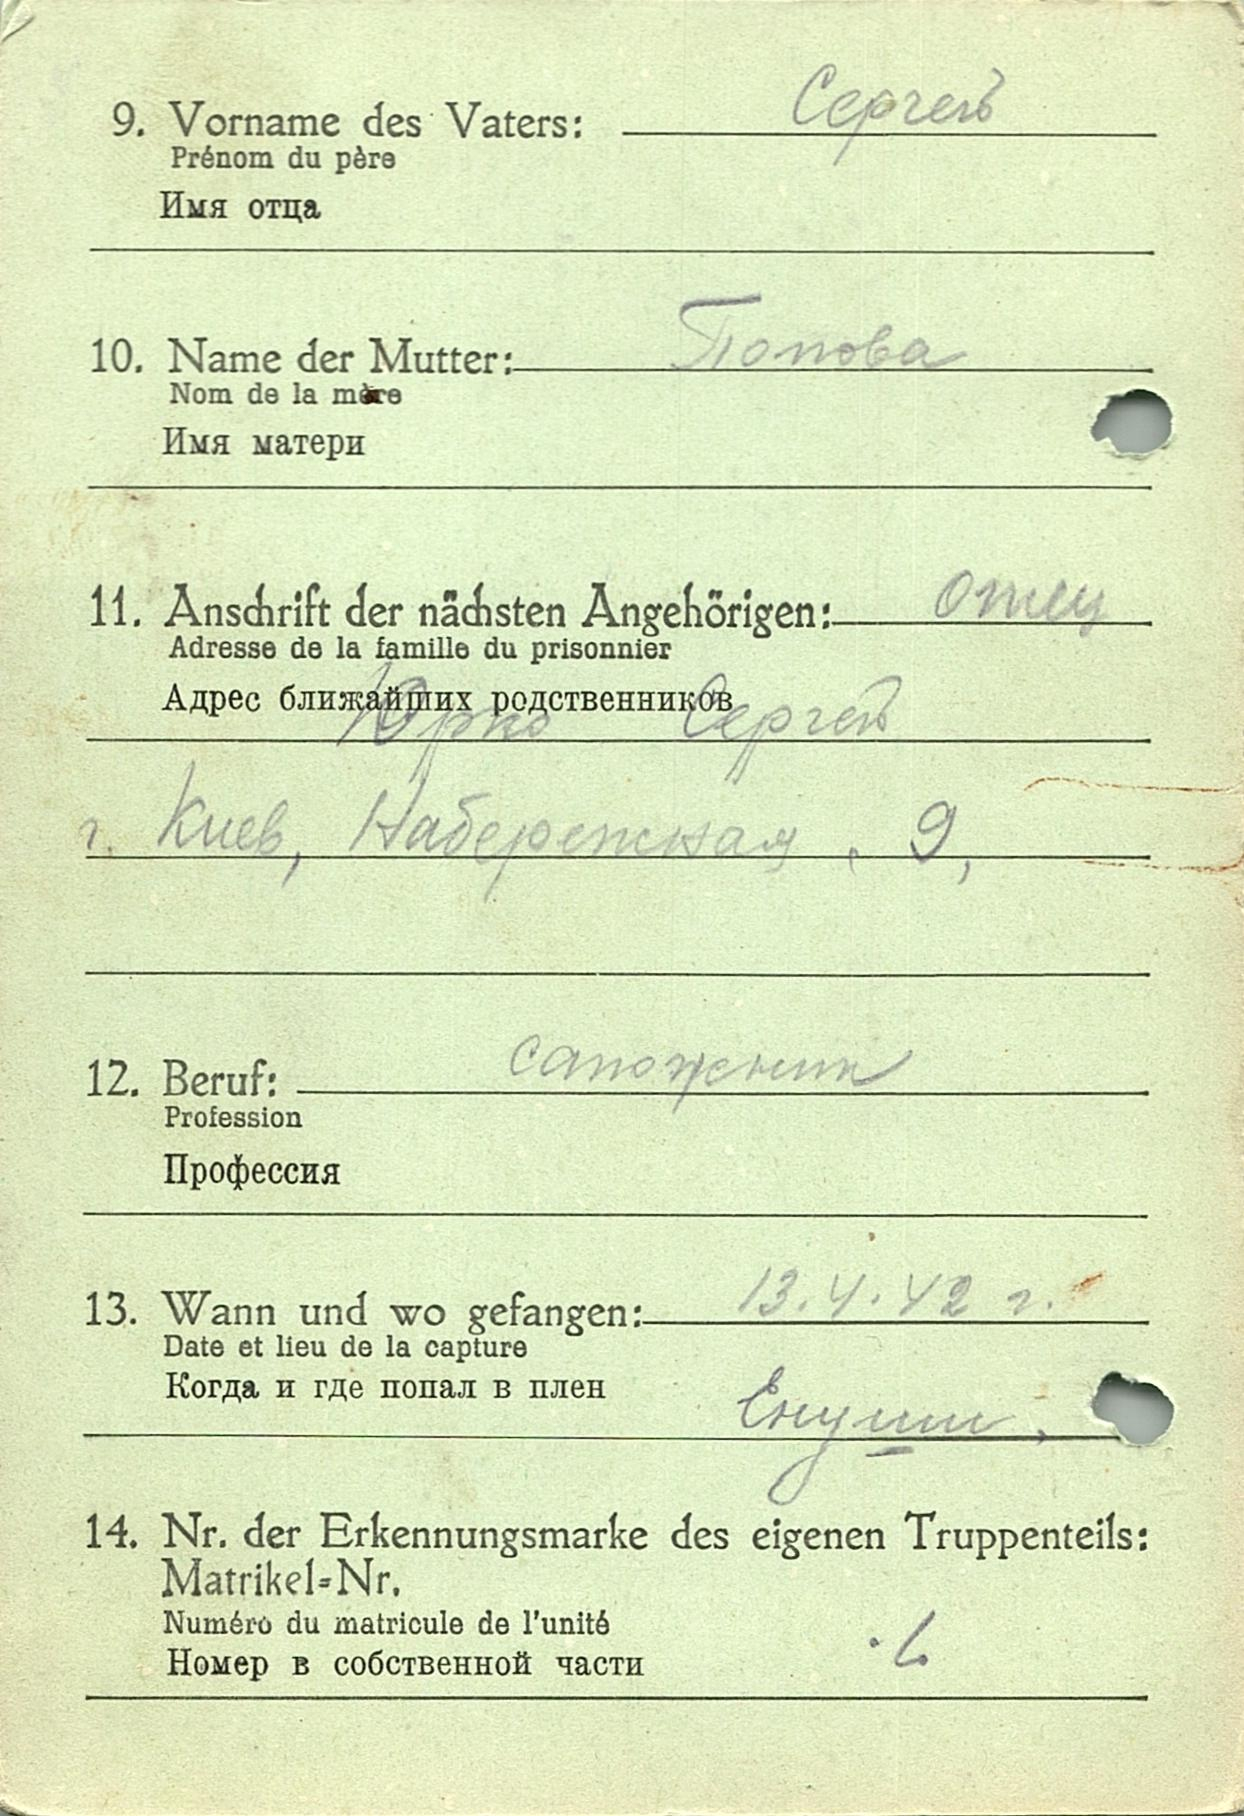 9. Vorname des Vaters: Сергей
Prénom du père
Имя отца
10. Name der Mutter: Попова
Nom de la mère
Имя матери
11. Anschrift der nächsten Angehörigen: отец
Adresse de la famille du prisonnier
Адрес ближайших родственников
Юрко Сергей
г. Киев, Набережная, 9,
12. Beruf: сапожник
Profession
Профессия
13. Wann und wo gefangen: 13.4.42 г.
Date et lieu de la capture
Когда и где попал в плен
14. Nr. der Erkennungsmarke des eigenen Truppenteils:
Matrikel=Nr.
Numéro du matricule de l'unité
Номер в собственной части